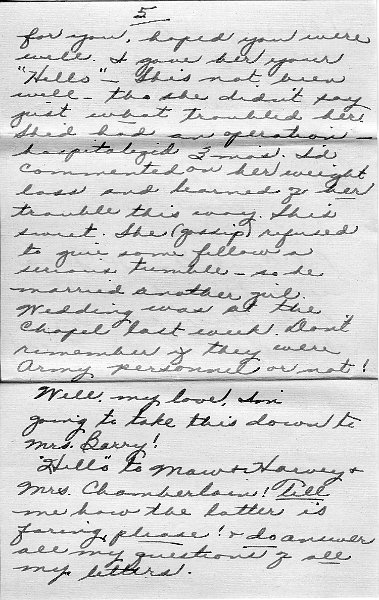 5
for you, hoped you were
well. I gave her your
"Hello" - She's not been
well - tho she didn't say
just what troubled her.
She'd had an operation -
hospitalized 3 mos. I'd
commented on her weight
loss and learned of her
trouble this way. She's
sweet. She (gossip) refused
to give some fellow a
serious tumble - so he
married another girl.
Wedding was at the
Chapel last week. Don't
remember if they were
Army personnel or not!
Well, my love, Im
going to take this down to
Mrs. Barry!
"Hello" to Maw & Harvey &
Mrs. Chamberlain! Tell
me how the latter is
faring, please! & do answer
all my questions of all
my letters.